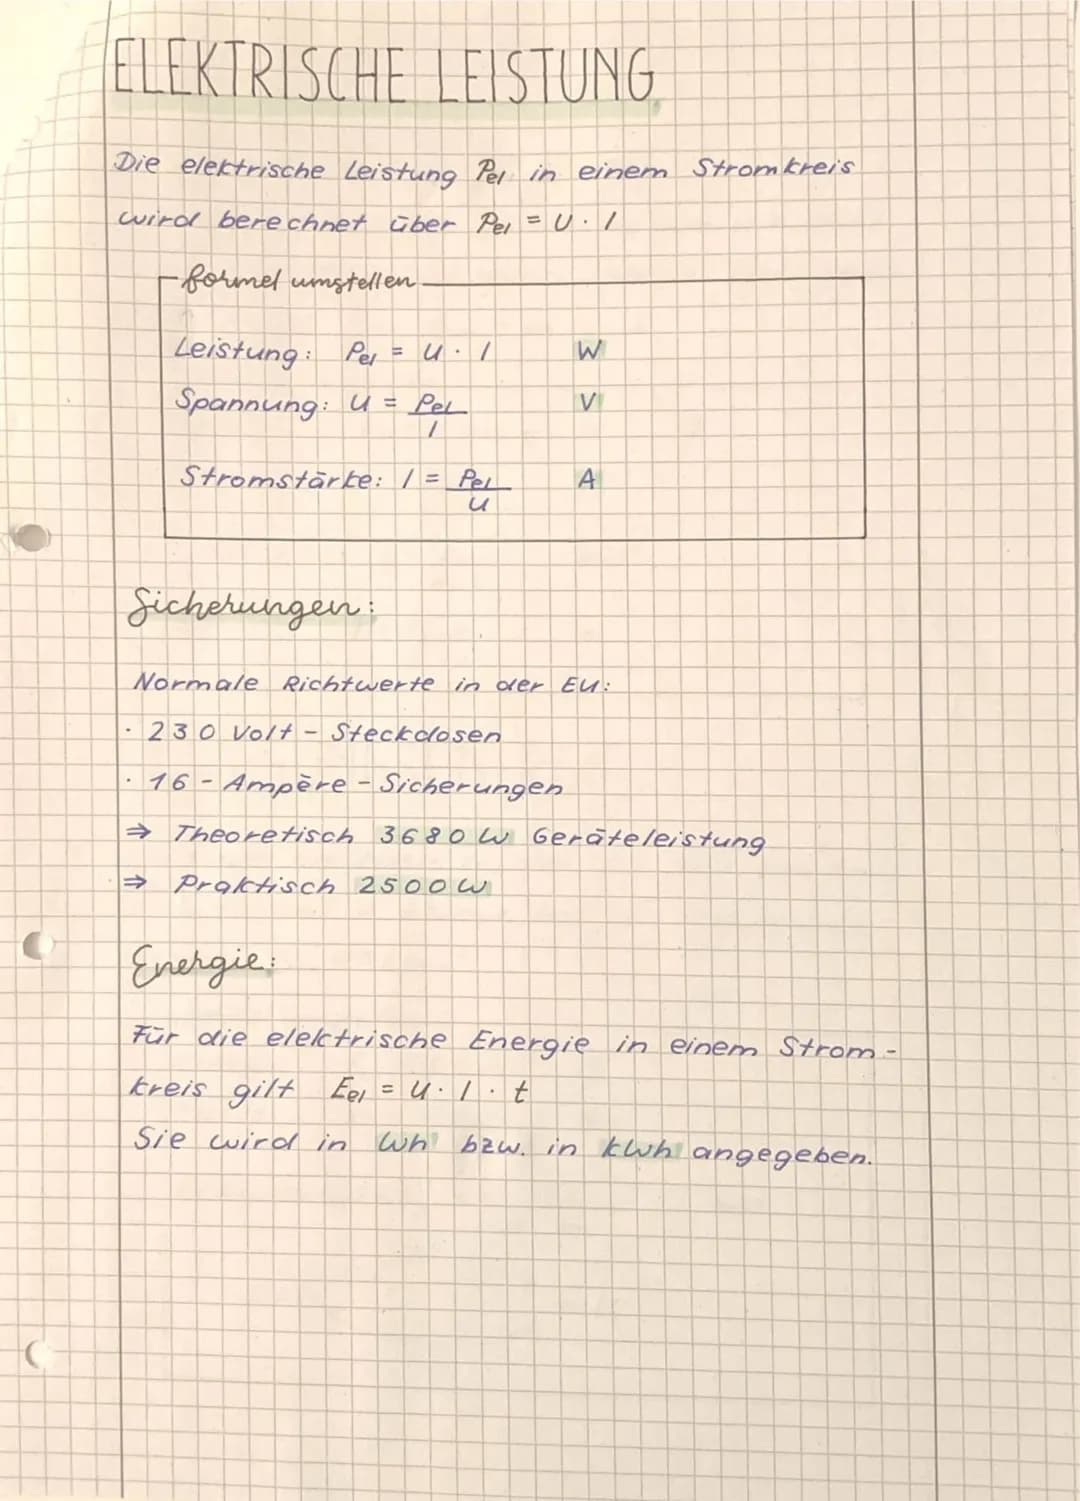 ELEKTRISCHE LEISTUNG
Die elektrische Leistung Pel in einem Stromkreis
wird berechnet über Pel = U · I
formel umstellen
Leistung: Pel = U · I W
Spannung: U = Pel / I V
Stromstärke: I = Pel / U A
Sicherungen:
Normale Richtwerte in der EU:
· 230 Volt - Steckdosen
· 16 - Ampère - Sicherungen
⇒ Theoretisch 3680 W Geräteleistung
⇒ Praktisch 2500 W
Energie:
Für die elektrische Energie in einem Strom-
kreis gilt Eel = U · I · t
Sie wird in Wh bzw. in kWh angegeben.